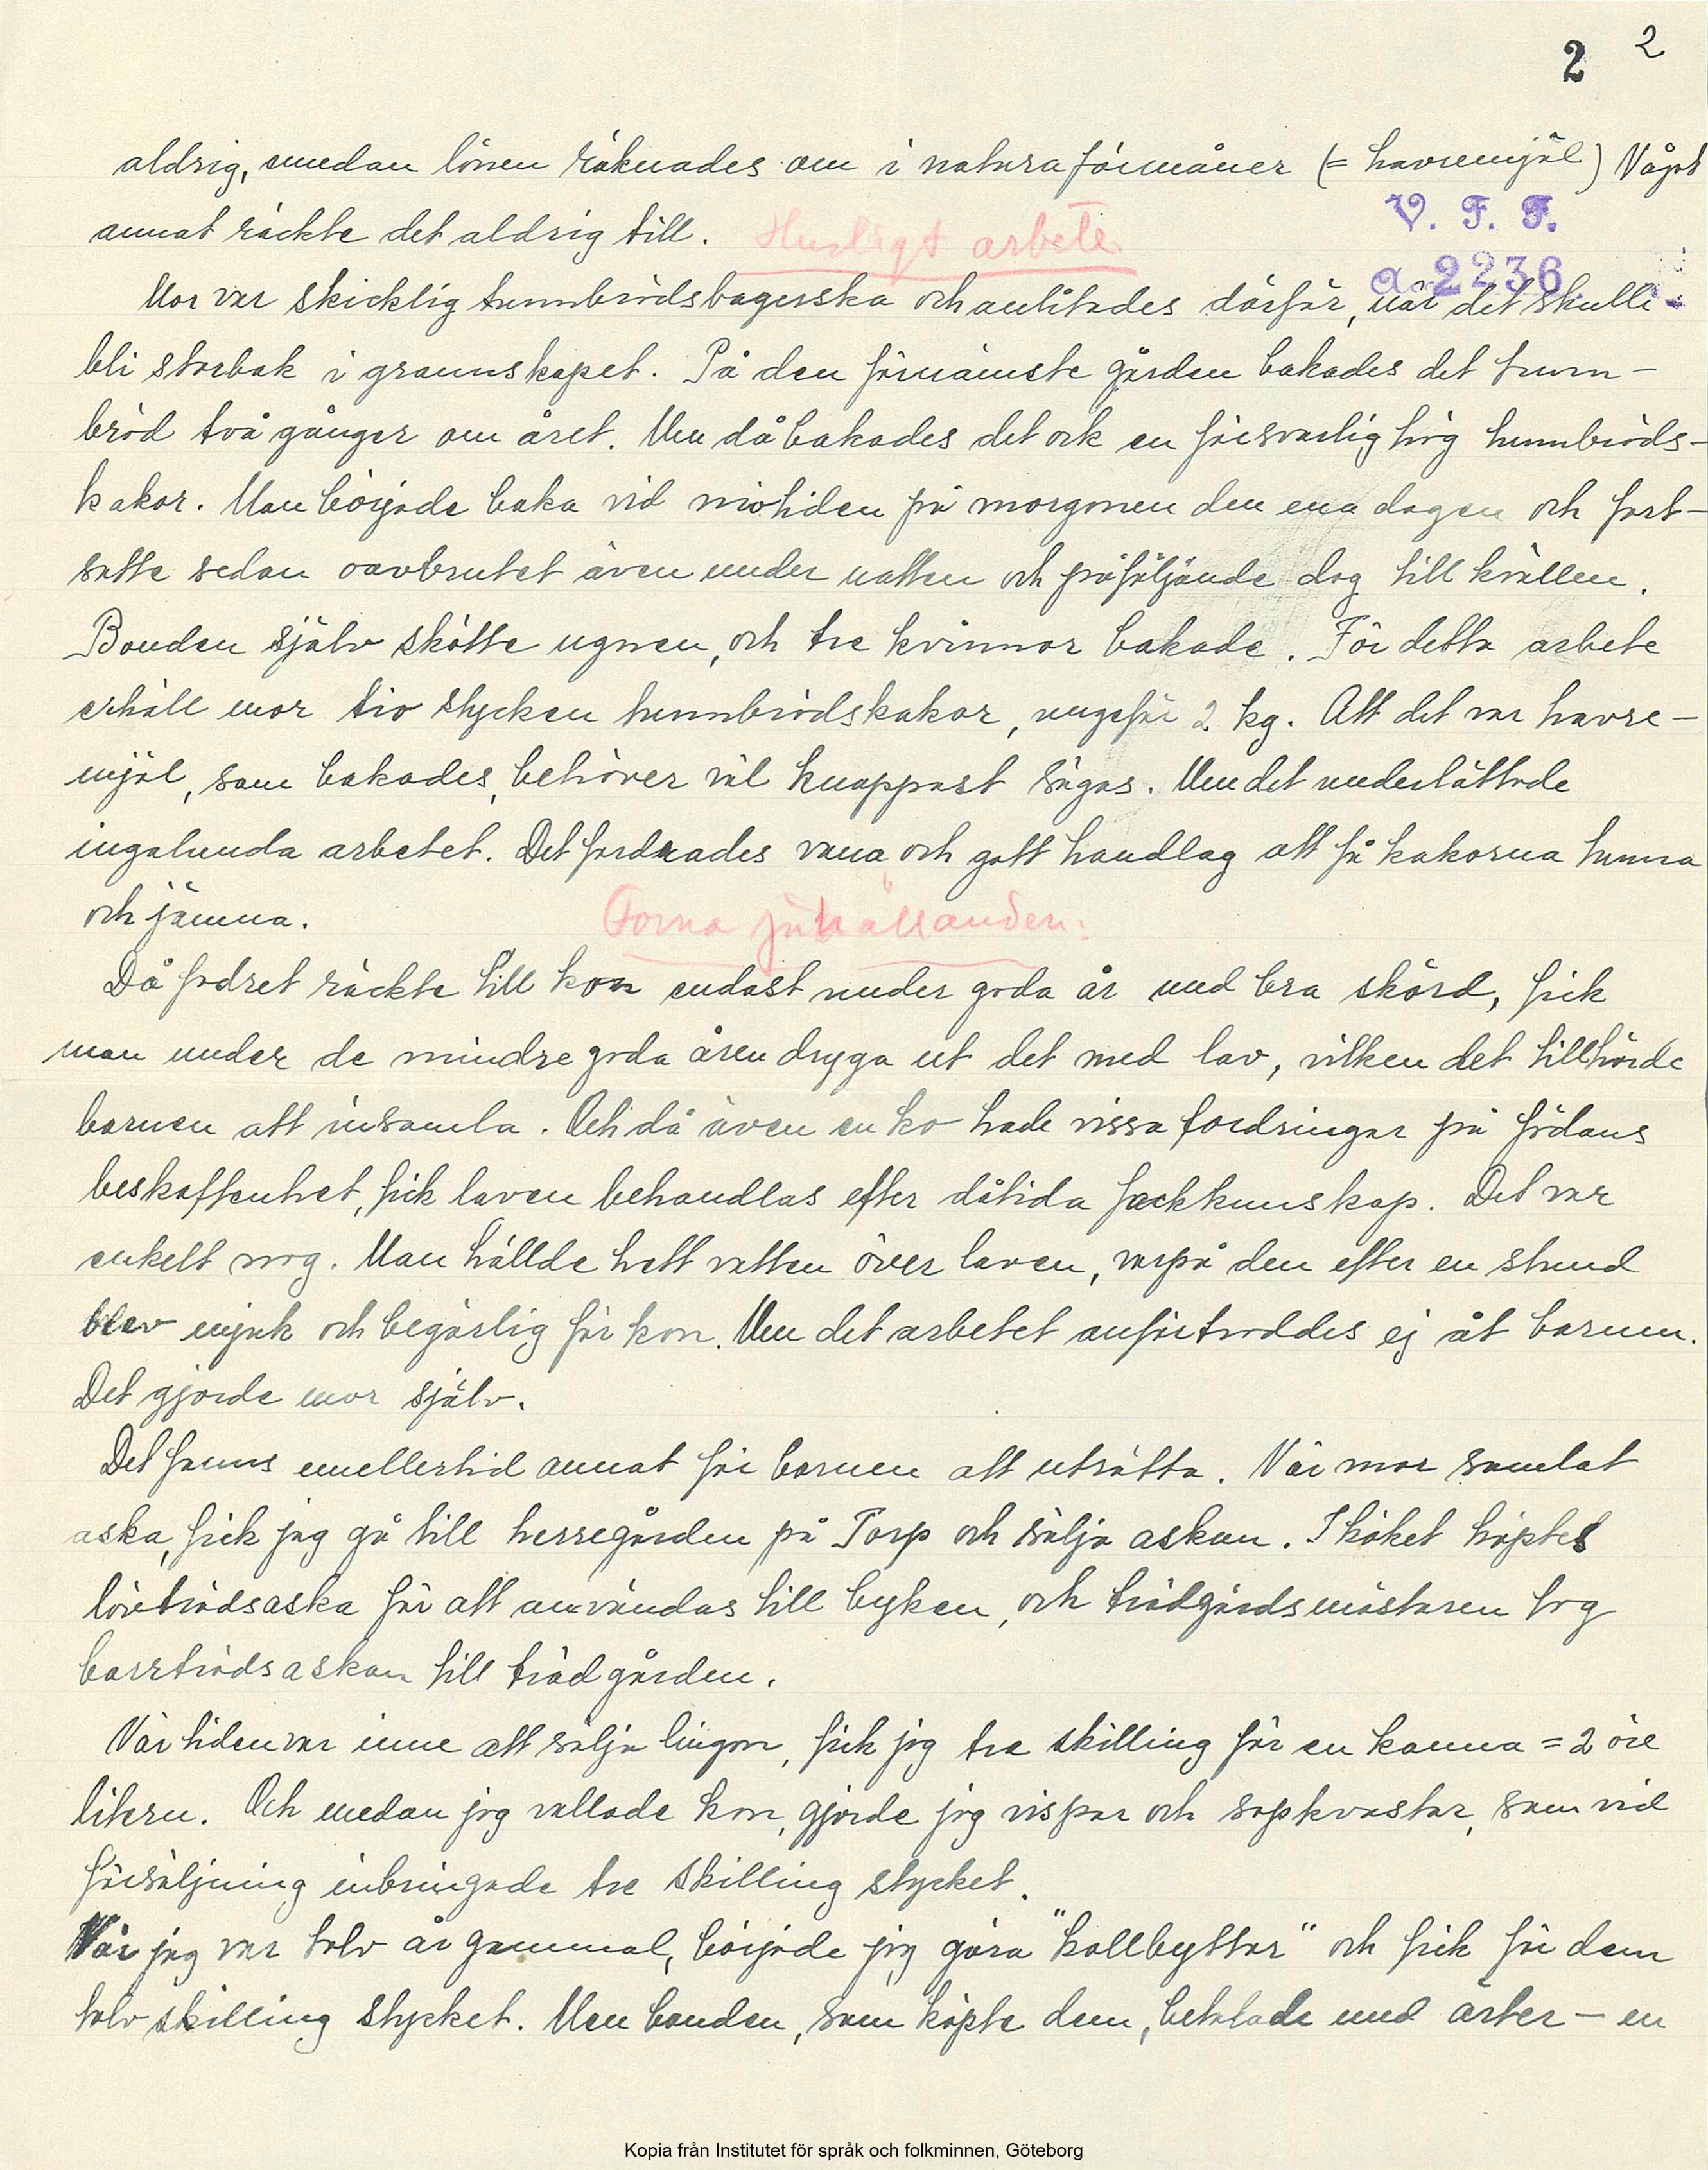 2 2
aldrig, emedan lönen räknades om i naturaförmåner (= havremjöl) Något
annat räckte det aldrig till.
Husligt arbete
V. F. F.
a. 2236
Mor var skicklig tunnbrödsbagerska och anlitades därför, när det skulle
bli storbak i grannskapet. På den förnämste gården bakades det tunn-
bröd två gånger om året. Men då bakades det ock en försvarlig hög tunnbröds-
kakor. Man började baka vid niotiden på morgonen den ena dagen och fort-
satte sedan oavbrutet även under natten och påföljande dag till kvällen.
Bonden själv skötte ugnen, och tre kvinnor bakade. För detta arbete
erhöll mor tio stycken tunnbrödskakor, ungefär 2 kg. Att det var havre-
mjöl, som bakades, behöver väl knappast sägas. Men det underlättade
ingalunda arbetet. Det fordrades vana och gott handlag att få kakorna tunna
och jämna.
Forna förhållanden:
Då fodret räckte till kon endast under goda år med bra skörd, fick
man under de mindre goda åren dryga ut det med lav, vilken det tillhörde
barnen att insamla. Och då även en ko hade vissa fordringar på födans
beskaffenhet, fick laven behandlas efter dåtida fackkunskap. Det var
enkelt nog. Man hällde hett vatten över laven, varpå den efter en stund
blev mjuk och begärlig för kon. Men det arbetet anförtroddes ej åt barnen.
Det gjorde mor själv.
Det fanns emellertid annat för barnen att uträtta. När mor samlat
aska, fick jag gå till herregården på Torp och sälja askan. I köket köptes
lövträdsaska för att användas till byken, och trädgårdsmästaren tog
barrträdsaskan till trädgården.
När tiden var inne att sälja lingon, fick jag tre skilling för en kanna = 2 öre
litern. Och medan jag vallade kon, gjorde jag vispar och sopkvastar, som vid
försäljning inbringade tre skilling stycket.
När jag var tolv år gammal, började jag göra "kollbyttor" och fick för dem
tolv skilling stycket. Men bonden, som köpte dem, betalade med ärter — en
Kopia från Institutet för språk och folkminnen, Göteborg